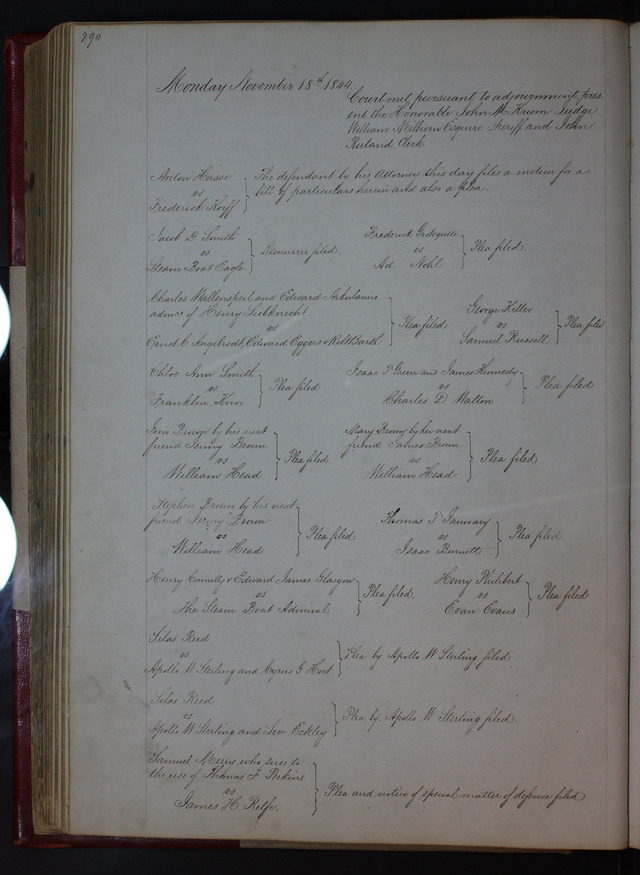 290
Monday November 18th 1844
Court met pursuant to adjournment, pres
ent the Honorable John M. Krum Judge
William Milburn Esquire Sheriff and John
Ruland Clerk
Anton Hasse
vs
Frederick Korff
The defendant by his Attorney this day files a motion for a
bill of particulars herein and also a plea.
Jacob D. Smith
vs
Steam Boat Eagle
Demurrer filed.
Frederick
vs
Ad. Nohl
Plea filed.
Charles Wallenspeil and Edward
admrs of Henry Liebknecht
vs
Ernst C Angelrodt, Edward Eggers & Robt Barth
Plea filed
George Keller
vs
Samuel Russell
Plea filed
Chloe Ann Smith
vs
Franklin Knox
Plea filed
Isaac T Green and James Kennedy
vs
Charles D Walton
Plea filed
Brown by his next
friend Jenny Brown
vs
William Head
Plea filed.
Mary Brown by her next
friend Brown
vs
William Head
Plea filed
Stephen Brown by his next
friend Jenny Brown
vs
William Head
Plea filed
Thomas T January
vs
Isaac Burnett
Plea filed
Henry Connelly & Edward James Glasgow
vs
The Steam Boat Admiral
Plea filed.
Henry Philibert
vs
Evan Evans
Plea filed
Silas Reed
vs
Apollo W Sterling and Cyrus G Hort
Plea by Apollo W Sterling filed
Silas Reed
vs
Apollo W Sterling and Levi Eckley
Plea by Apollo W Sterling filed.
Samuel Merry who sues to
the use of Thomas F Perkins
vs
James H Relfe.
Plea and notice of special matter of defence filed